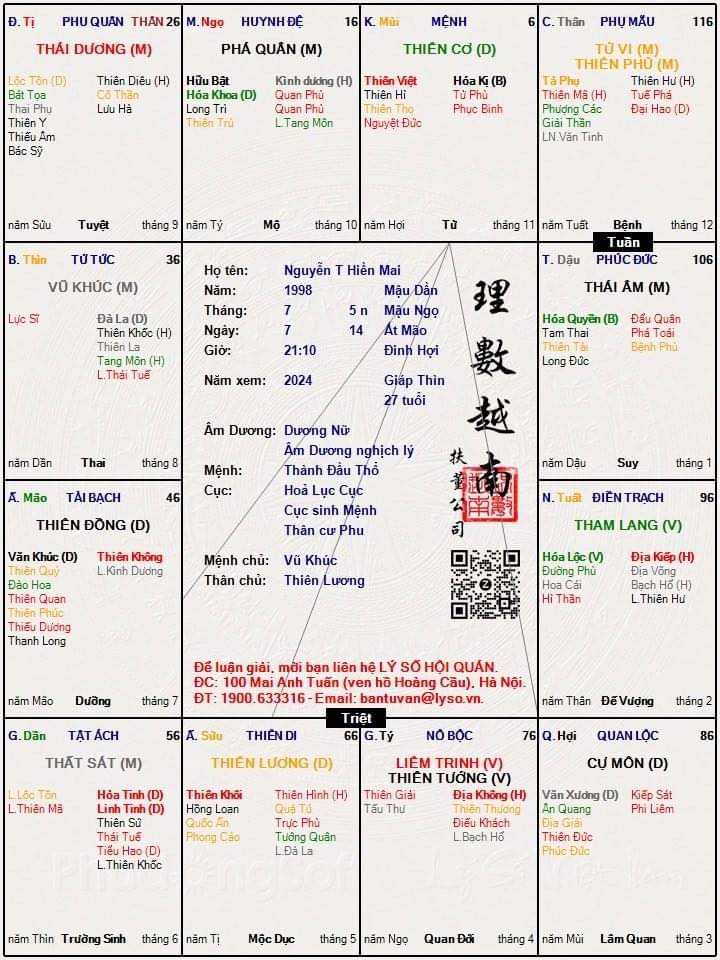 Đ. Tị PHU QUÂN THÂN 26
THÁI DƯƠNG (M)
Lộc Tồn (D) Thiên Diêu (H)
Bát Tọa Cô Thần
Thai Phụ Lưu Hà
Thiên Y
Thiếu Âm
Bác Sỹ
năm Sửu Tuyệt tháng 9
M. Ngọ HUYNH ĐỆ 16
PHÁ QUÂN (M)
Hữu Bật Kình dương (H)
Hóa Khoa (D) Quan Phù
Long Trì Quan Phủ
Thiên Trù L.Tang Môn
năm Tý Mộ tháng 10
K. Mùi MỆNH 6
THIÊN CƠ (D)
Thiên Việt Hóa Kị (B)
Thiên Hỉ Tử Phù
Thiên Thọ Phục Binh
Nguyệt Đức
năm Hợi Tử tháng 11
C. Thân PHỤ MẪU 116
TỬ VI (M)
THIÊN PHỦ (M)
Tả Phụ Thiên Hư (H)
Thiên Mã (H) Tuế Phá
Phượng Các Đại Hao (D)
Giải Thần
LN.Văn Tinh
năm Tuất Bệnh tháng 12
Tuần
B. Thìn TỬ TỨC 36
VŨ KHÚC (M)
Lực Sĩ Đà La (D)
Thiên Khốc (H)
Thiên La
Tang Môn (H)
L.Thái Tuế
năm Dần Thai tháng 8
Họ tên: Nguyễn T Hiền Mai
Năm: 1998 Mậu Dần
Tháng: 7 5 n Mậu Ngọ
Ngày: 7 14 Ất Mão
Giờ: 21:10 Đinh Hợi
Năm xem: 2024 Giáp Thìn
27 tuổi
Âm Dương: Dương Nữ
Âm Dương nghịch lý
Mệnh: Thành Đầu Thổ
Cục: Hoả Lục Cục
Cục sinh Mệnh
Thân cư Phu
Mệnh chủ: Vũ Khúc
Thân chủ: Thiên Lương
理數越南
扶董公司
Để luận giải, mời bạn liên hệ LÝ SỐ HỘI QUÁN.
ĐC: 100 Mai Anh Tuấn (ven hồ Hoàng Cầu), Hà Nội.
ĐT: 1900.633316 - Email: bantuvan@lyso.vn.
T. Dậu PHÚC ĐỨC 106
THÁI ÂM (M)
Hóa Quyền (B) Đẩu Quân
Tam Thai Phá Toái
Thiên Tài Bệnh Phù
Long Đức
năm Dậu Suy tháng 1
Ấ. Mão TÀI BẠCH 46
THIÊN ĐỒNG (D)
Văn Khúc (D) Thiên Không
Thiên Quý L.Kình Dương
Đào Hoa
Thiên Quan
Thiên Phúc
Thiếu Dương
Thanh Long
năm Mão Dưỡng tháng 7
N. Tuất ĐIỀN TRẠCH 96
THAM LANG (V)
Hóa Lộc (V) Địa Kiếp (H)
Đường Phù Địa Võng
Hoa Cái Bạch Hổ (H)
Hỉ Thần L.Thiên Hư
năm Thân Đế Vượng tháng 2
Triệt
G. Dần TẬT ÁCH 56
THẤT SÁT (M)
L.Lộc Tồn Hỏa Tinh (D)
L.Thiên Mã Linh Tinh (D)
Thiên Sứ
Thái Tuế
Tiểu Hao (D)
L.Thiên Khốc
năm Thìn Trường Sinh tháng 6
Ấ. Sửu THIÊN DI 66
THIÊN LƯƠNG (D)
Thiên Khôi Thiên Hình (H)
Hồng Loan Quả Tú
Quốc Ấn Trực Phù
Phong Cáo Tướng Quân
L.Đà La
năm Tị Mộc Dục tháng 5
G. Tý NÔ BỘC 76
LIÊM TRINH (V)
THIÊN TƯỚNG (V)
Thiên Giải Địa Không (H)
Tấu Thư Thiên Thương
Điếu Khách
L.Bạch Hổ
năm Ngọ Quan Đới tháng 4
Q. Hợi QUAN LỘC 86
CỰ MÔN (D)
Văn Xương (D) Kiếp Sát
Ân Quang Phi Liêm
Địa Giải
Thiên Đức
Phúc Đức
năm Mùi Lâm Quan tháng 3